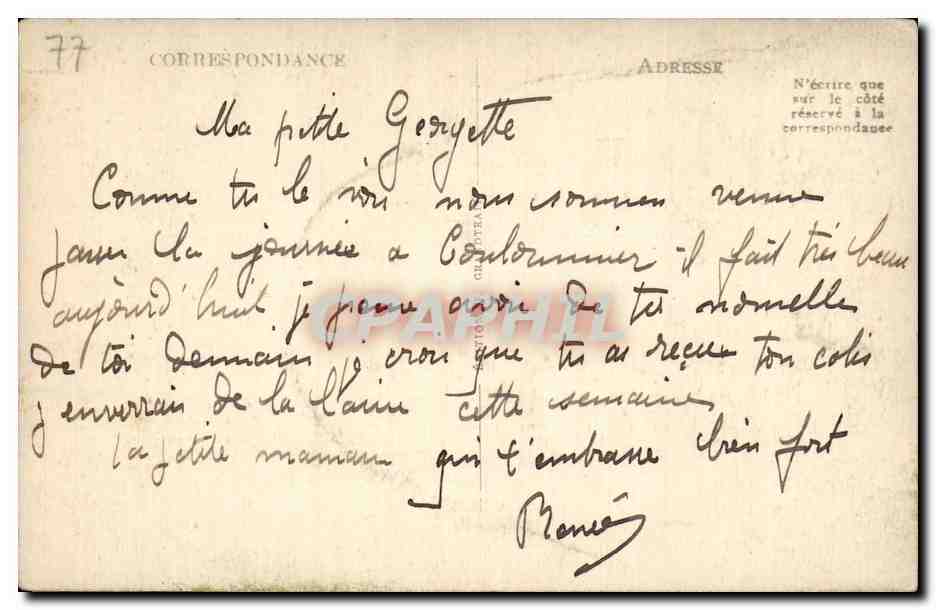 77
CORRESPONDANCE
ADRESSE
N'écrire que
sur le côté
réservé à la
correspondance
Ma petite Georgette
Comme tu le vois nous sommes venue
passer la journée a Coulommier il fait très beau
aujourd'huit je pense avoir de tes nouvelle
de toi demain je crois que tu as reçue ton colis
j enverrais de la laine cette semaine
ta petite maman qui t'embrasse bien fort
Renée
CPAPHIL